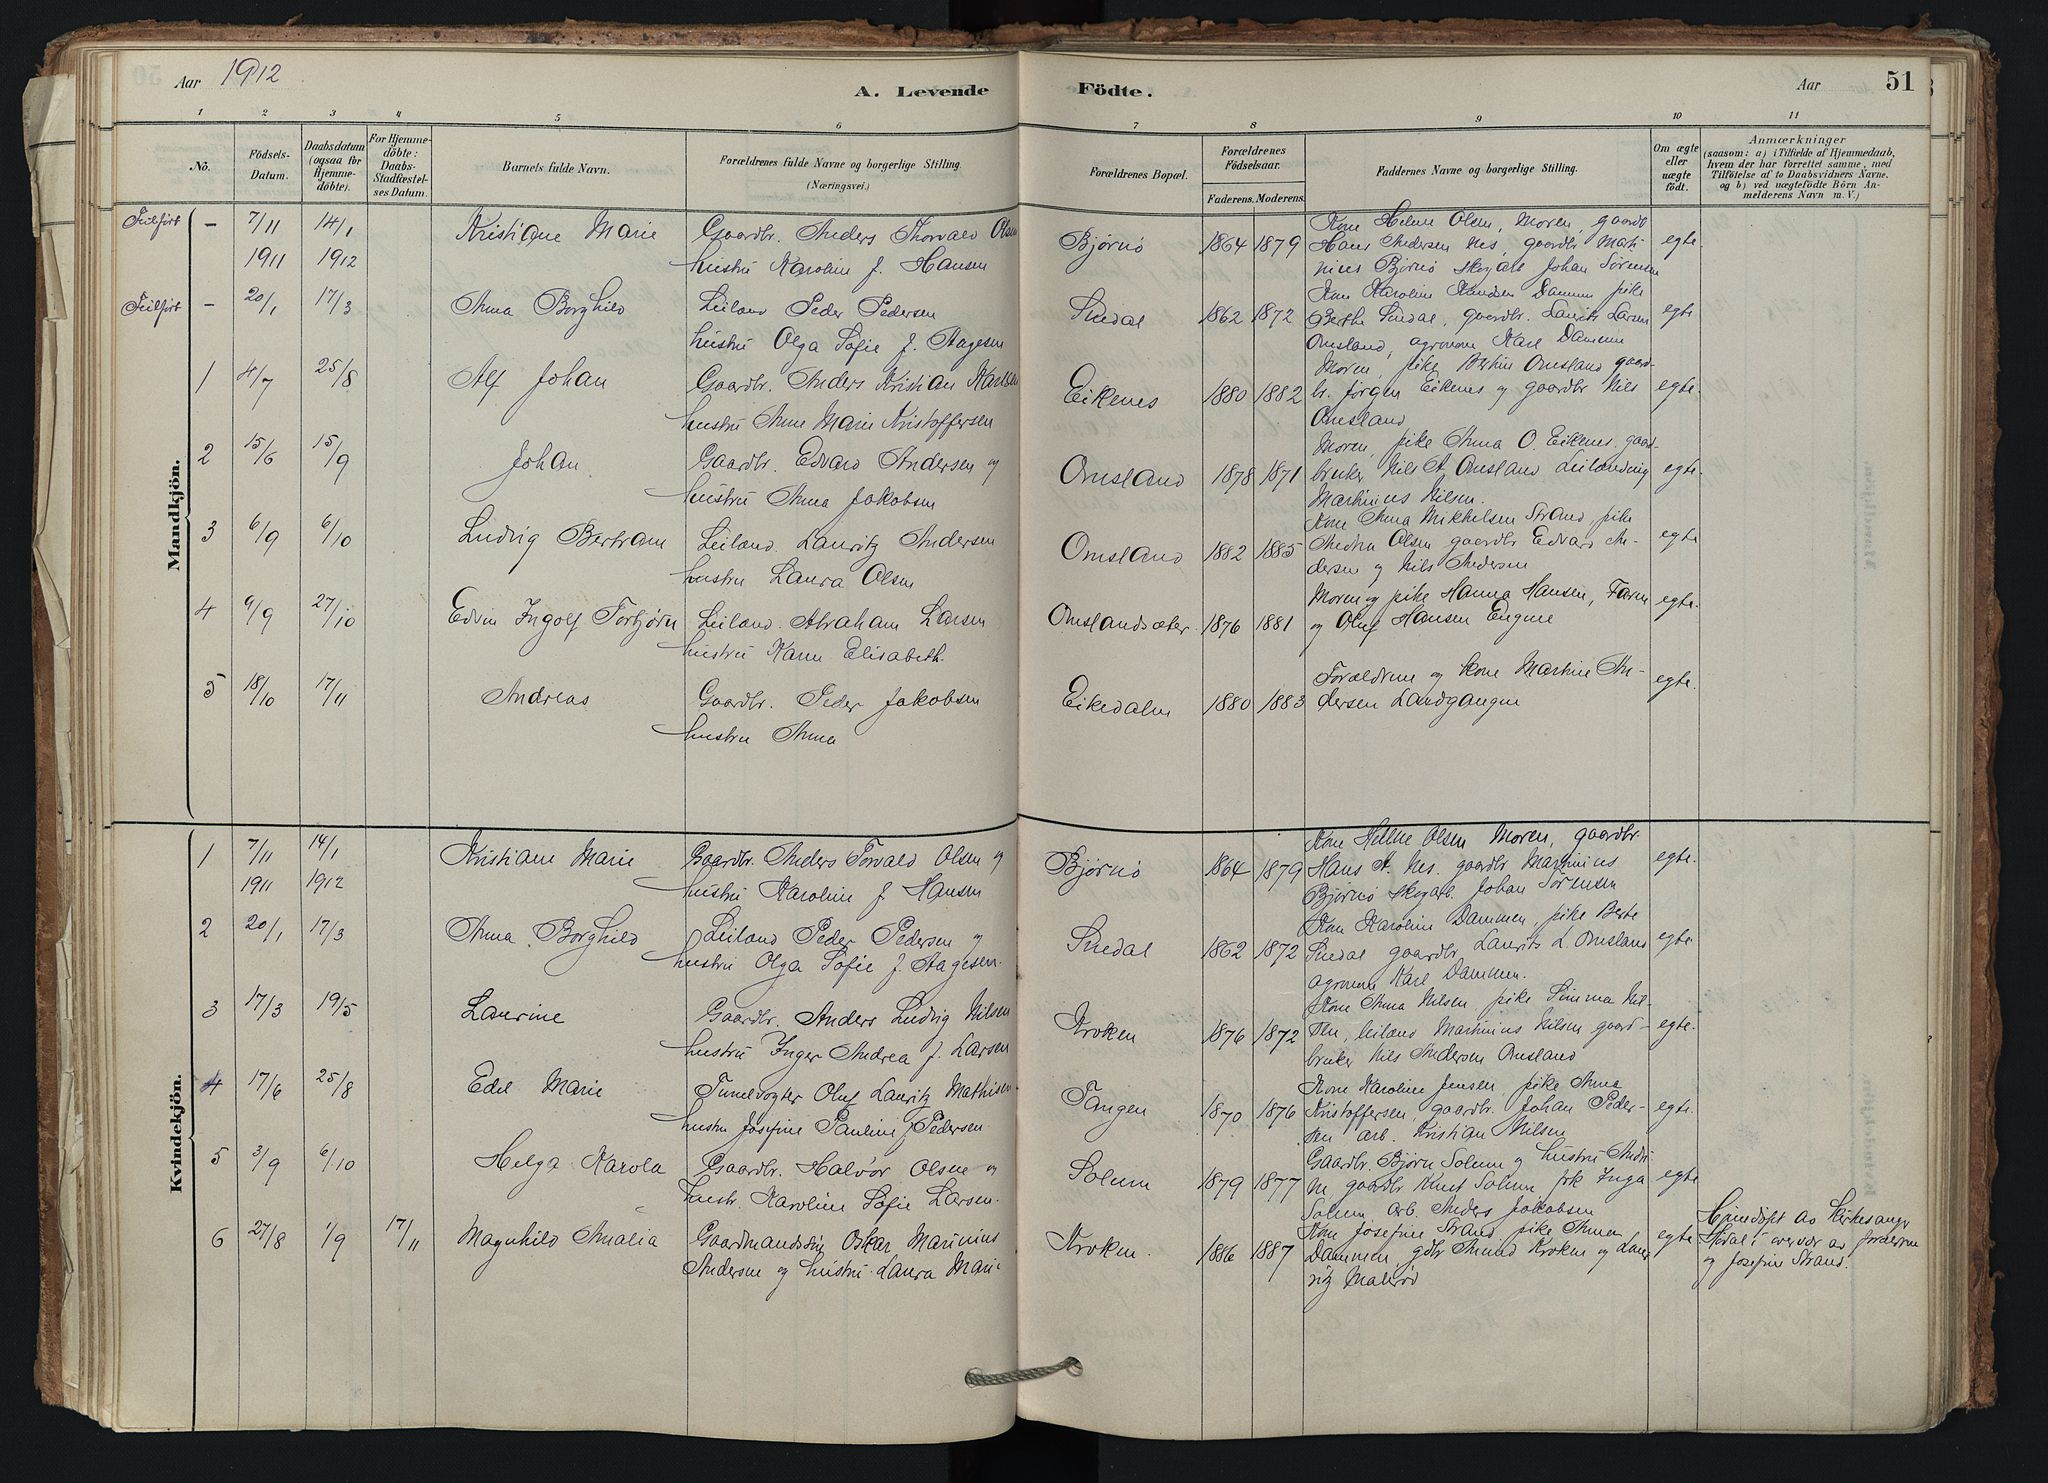 Aar 1912
A. Levende Födte.
Aar 51
1 2 3 4 5 6 7 8 9 10 11
No.
Födsels-Datum.
Daabsdatum (ogsaa for Hjemmedöbte).
For Hjemmedöbte: Daabs-Stadfæstelses Datum.
Barnets fulde Navn.
Forældrenes fulde Navne og borgerlige Stilling. (Næringsvei.)
Forældrenes Bopæl.
Forældrenes Födselsaar.
Faderens. Moderens.
Faddernes Navne og borgerlige Stilling.
Om ægte eller uægte födt.
Anmærkninger
(saasom: a) i Tilfælde af Hjemmedaab,
hvem der har forrettet samme, med
Tilföielse af to Daabsvidners Navne.
og b) ved uægtefödte Börn Anmelderens Navn m. V.)
Mandkjön.
Feilført - 7/11 14/1 Kristiane Marie Gaardbr. Anders Thorvald Olsen Bjørnø 1864 1879 Kone Helene Olsen, Moren, gaardb egte
1911 1912 hustru Karoline f. Hansen Hans Andersen Nes, gaardbr Marti-
nius Bjørnø skogarb Johan Sørensen
Feilført - 20/1 17/3 Anna Borghild Leilænd Peder Pedersen Snedal 1862 1872 Kone Karoline Knudsen Dammen pike egte
hustru Olga Sofie f. Aagesen Berthe Snedal, gaardbr. Laurits Larsen
Omsland, agronom Karl Dammen
1 4/7 25/8 Alf Johan Gaardbr. Anders Kristian Karlsen Eikenes 1880 1882 Moren, pike Bertine Omsland gaard- egte.
hustru Anne Marie Kristoffersen br. Jørgen Eikenes og gaardbr Nils
Omsland
2 15/6 15/9 Johan Gaardbr. Edvard Andersen og Omsland 1878 1871 Moren, pike Anna O. Eikenes, gaard- egte.
hustru Anna Jakobsen bruker Nils A. Omsland Leilænding
Martinius Nilsen.
3 6/9 6/10 Ludvig Bertram Leilænd. Lauritz Andersen Omsland 1882 1885 Kone Anna Mikkelsen Strand, pike egte
hustru Laura Olsen Andrea Olsen gaardbr Edvard An-
dersen og Nils Andersen
4 9/9 27/10 Edvin Ingolf Torbjørn Leilænd. Abraham Larsen Omslandsæter. 1876 1881 Moren og pike Hanna Hansen, Faren egte.
hustru Karen Elisabeth. og Oluf Hansen Engene
5 18/10 17/11 Andreas Gaardbr. Peder Jakobsen Eikedalen 1880 1883 Forældrene og kone Martine An- egte.
hustru Anna dersen Landgangen
Kvindekjön.
1 7/11 14/1 Kristiane Marie Gaardbr. Anders Torvald Olsen og Bjørnø 1864 1879 Kone Hellene Olsen Moren, gaardbr. egte.
1911 1912 hustru Karoline f. Hansen Hans A. Nes. gaardbr Martinius
Bjørnø skogarb. Johan Sørensen
2 20/1 17/3 Anna Borghild Leilænd Peder Pedersen og Snedal 1862 1872 Kone Karoline Dammen, pike Berte egte.
hustru Olga Sofie f. Aagesen. Snedal gaardbr Laurits L. Omsland
agronom Karl Dammen.
3 17/3 19/5 Laurine Gaardbr. Anders Ludvig Nilsen Kroken 1876 1872 Kone Anna Nilsen, pike Nil- egte.
hustru Inger Andrea f. Larsen sen, leilænd Martinius Nilsen gaard-
bruker Nils Andersen Omsland
4 17/6 25/8 Edel Marie Tunelvogter Oluf Lauritz Mathisen Tangen 1870 1876 Kone Karoline Jensen, pike Anna egte.
hustru Josefine Pauline f Pedersen Kristoffersen, gaardbr. Johan Peder-
sen arb. Kristian Nilsen
5 3/9 6/10 Helga Karola Gaardbr. Halvor Olsen og Solum 1879 1877 Gaardbr. Bjørn Solum og hustru Andri- egte
hustr. Karoline Sofie Larsen. ne gaardbr Knut Solum, pik Inga
Solum, arb. Anders Jakobsen
6 27/8 1/9 17/11 Magnhild Amalia Gaardmandssøn Oskar Marinius Kroken. 1886 1887 Kone Josefine Strand pike Anna egte Hjemdøpt av kirkesanger
Andersen og hustru Laura Marie Dammen, gdbr Amund Kroken og Lau- i overvær av forældrene
ritz og Josefine Strand.